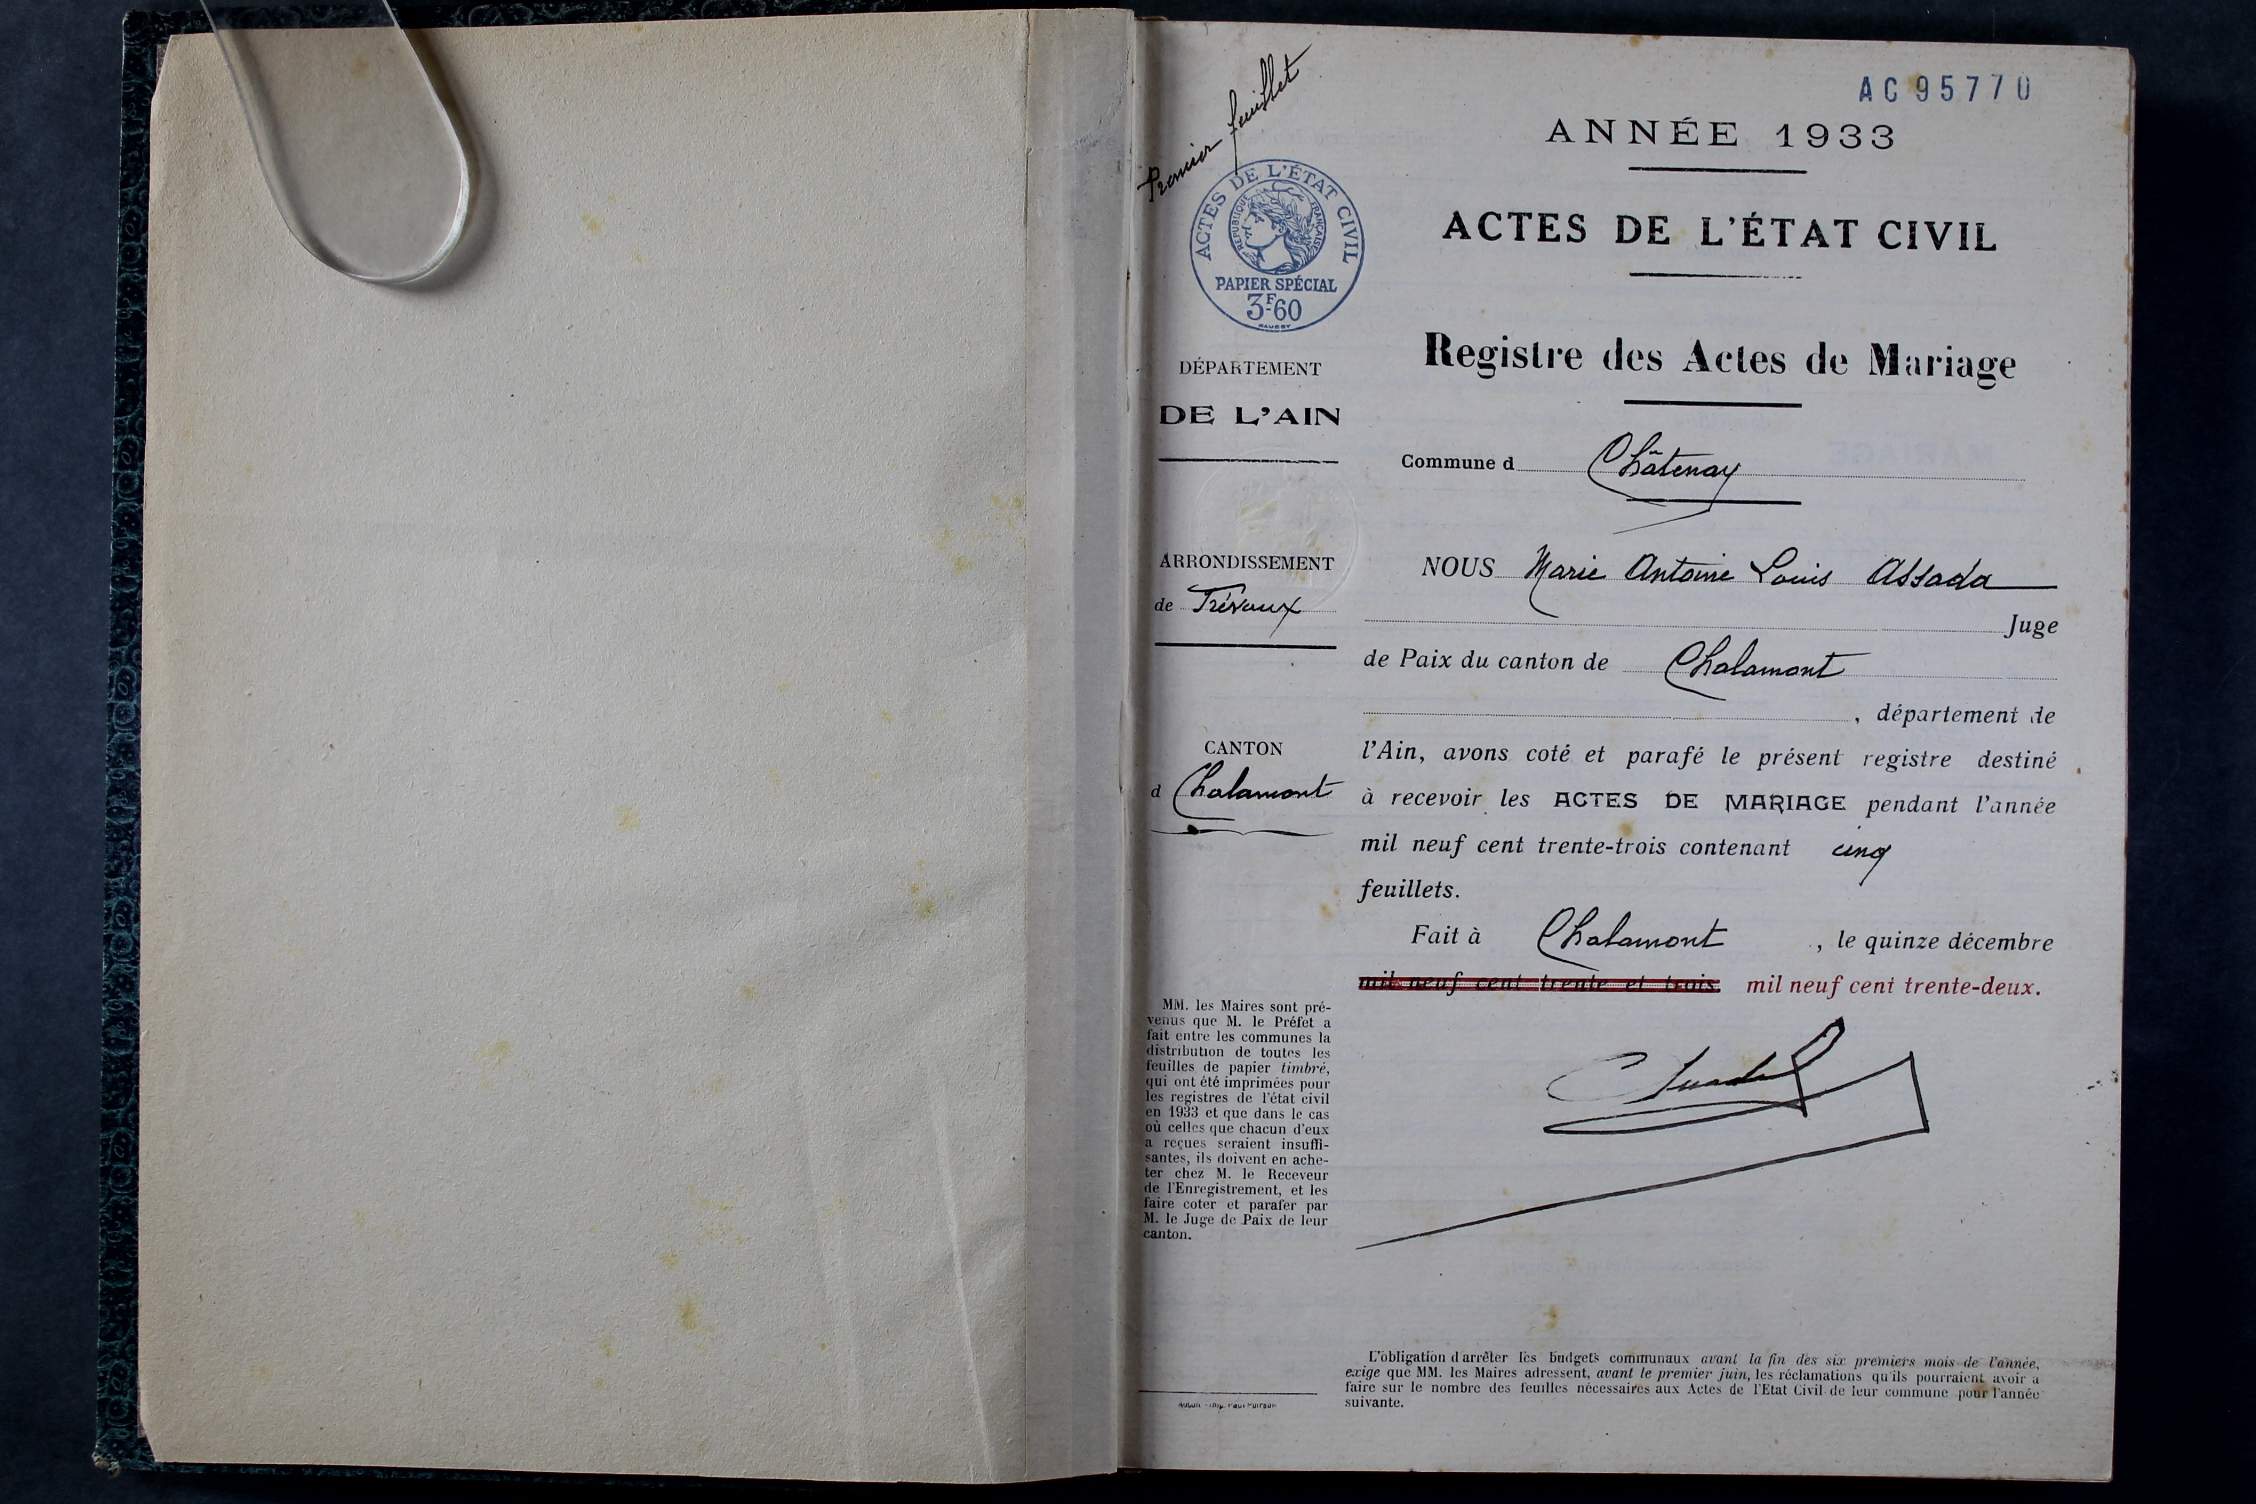 AC95770
Premier feuillet
ANNÉE 1933
ACTES DE L'ÉTAT CIVIL
RÉPUBLIQUE FRANÇAISE
PAPIER SPÉCIAL
3F.60
ACTES DE L'ÉTAT CIVIL
Registre des Actes de Mariage
DÉPARTEMENT
DE L'AIN
Commune d Châtenay
ARRONDISSEMENT
de Trévoux
NOUS Marie Antoine Louis Assada
Juge
de Paix du canton de Chalamont
, département de
CANTON
d Chalamont
l'Ain, avons coté et parafé le présent registre destiné
à recevoir les ACTES DE MARIAGE pendant l'année
mil neuf cent trente-trois contenant cinq
feuillets.
Fait à Chalamont , le quinze décembre
mil neuf cent trente et trois. mil neuf cent trente-deux.
MM. les Maires sont pré-
venus que M. le Préfet a
fait entre les communes la
distribution de toutes les
feuilles de papier timbré,
qui ont été imprimées pour
les registres de l'état civil
en 1933 et que dans le cas
où celles que chacun d'eux
a reçues seraient insuffi-
santes, ils doivent en ache-
ter chez M. le Receveur
de l'Enregistrement, et les
faire coter et parafer par
M. le Juge de Paix de leur
canton.
L'obligation d'arrêter les budgets communaux avant la fin des six premiers mois de l'année,
exige que MM. les Maires adressent, avant le premier juin, les réclamations qu'ils pourraient avoir à
faire sur le nombre des feuilles nécessaires aux Actes de l'Etat Civil de leur commune pour l'année
suivante.